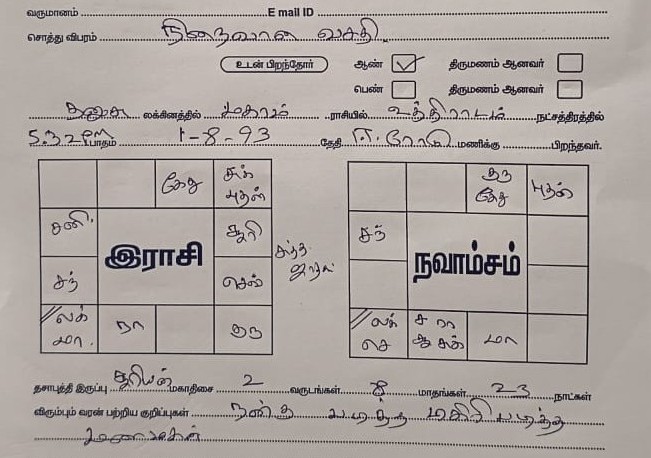 வருமானம் E mail ID
சொத்து விபரம் நிறைவான வசதி
உடன் பிறந்தோர் ஆண் ✓ திருமணம் ஆனவர்
பெண் திருமணம் ஆனவர்
தனுசு லக்கினத்தில் மகரம் ராசியில் உத்திராடம் நட்சத்திரத்தில்
5.32 PM பாதம் 1-8-93 தேதி ஈ.ரோடு மணிக்கு பிறந்தவர்.
கேது சுக் புதன் குரு கேது புதன்
சனி. சூரி சுத்த ஜாதகம் சந்
இராசி நவாம்சம்
சந் செவ்
லக் மா. ரா குரு லக் செ ச ரா சூ சுக் மா
தசாபுத்தி இருப்பு சூரியன் மகாதிசை 2 வருடங்கள் 8 மாதங்கள் 23 நாட்கள்
விரும்பும் வரன் பற்றிய குறிப்புகள் படித்த
மணமகன்